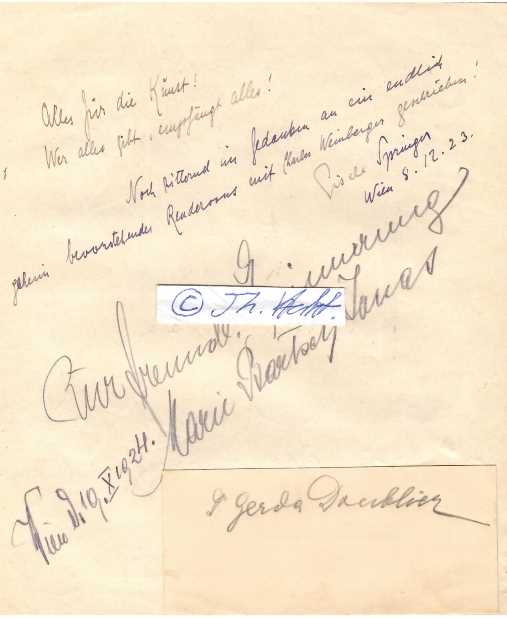 Alles für die Kunst!
Wer alles gibt, empfängt alles!
Noch zitternd im Gedanken an ein endlich
geheim bevorstehendes Rendezvous mit Charles Weinberger geschrieben!
Gisela Springer
Wien 8.12.23.
Zur freundl. Erinnerung
© Th. Hecht.
Marie Bartsch Jonas
Wien d. 19. X 1924.
Dr Gerda Doublier